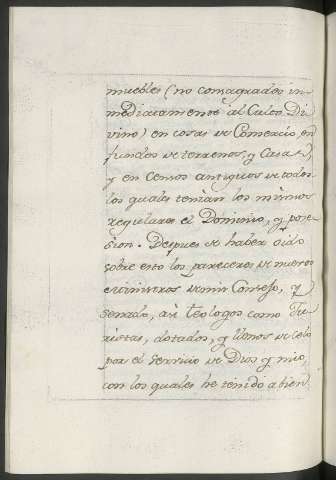 muebles (no consagrados in-
mediatamente al Culto Di
vino) en cosas de Comercio, en
fundos de terrenos, y Casas,
y en Censos antiguos de todos
los quales tenian los mismos
regulares el Dominio, y pose-
sion. Despues de haber oido
sobre esto los pareceres de nuevos
eministros de mi Consejo, y
Senado, asi teologos como Ju-
ristas, dotados, y llenos de celo
por el Servicio de Dios y mio,
con los quales he tenido a bien